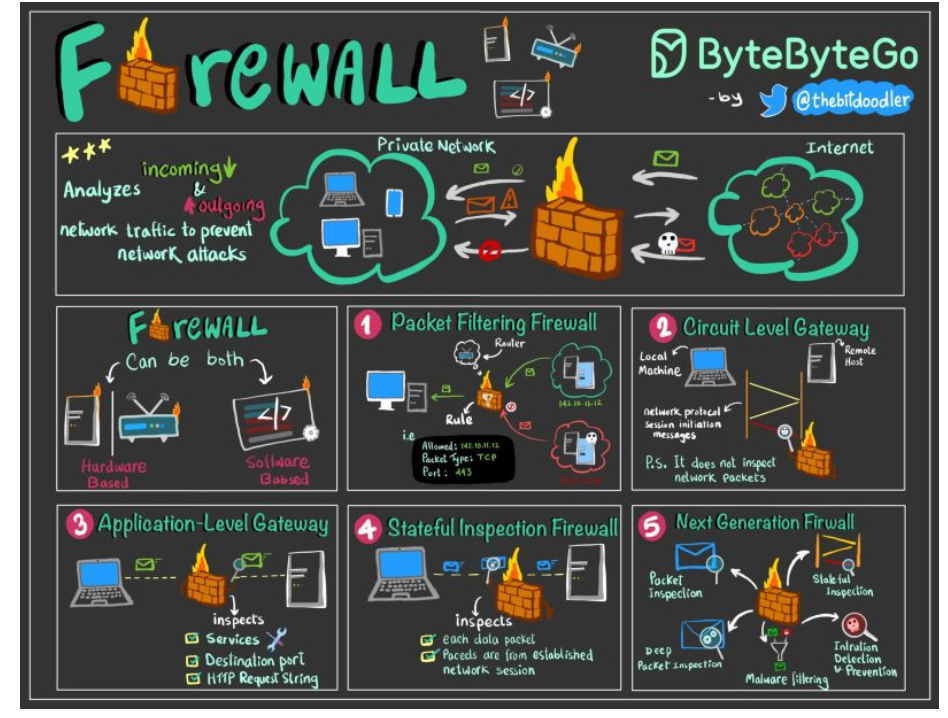 FIREWALL
ByteByteGo
-by @thebitdoodler
Analyzes incoming
&
outgoing
network traffic to prevent
network attacks
Private Network
Internet
</>
FIREWALL
Can be both
Hardware
Based
</>
Software
Babsed
1 Packet Filtering Firewall
Router
142.10.11.12
Rule
i.e
Allowed: 142.10.11.12
Packet Type: TCP
Port: 443
2 Circuit Level Gateway
Local
Machine
Remote
Host
network protocol
session initiation
messages
P.S. It does not inspect
network packets
3 Application-Level Gateway
inspects
Services
Destination port
HTTP Request String
4 Stateful Inspection Firewall
inspects
each data packet
5 Next Generation Firwall
Packet
Inspection
Stateful
Inspection
Deep
Packet Inspection
Malware filtering
Intrution
Detection
& Prevention